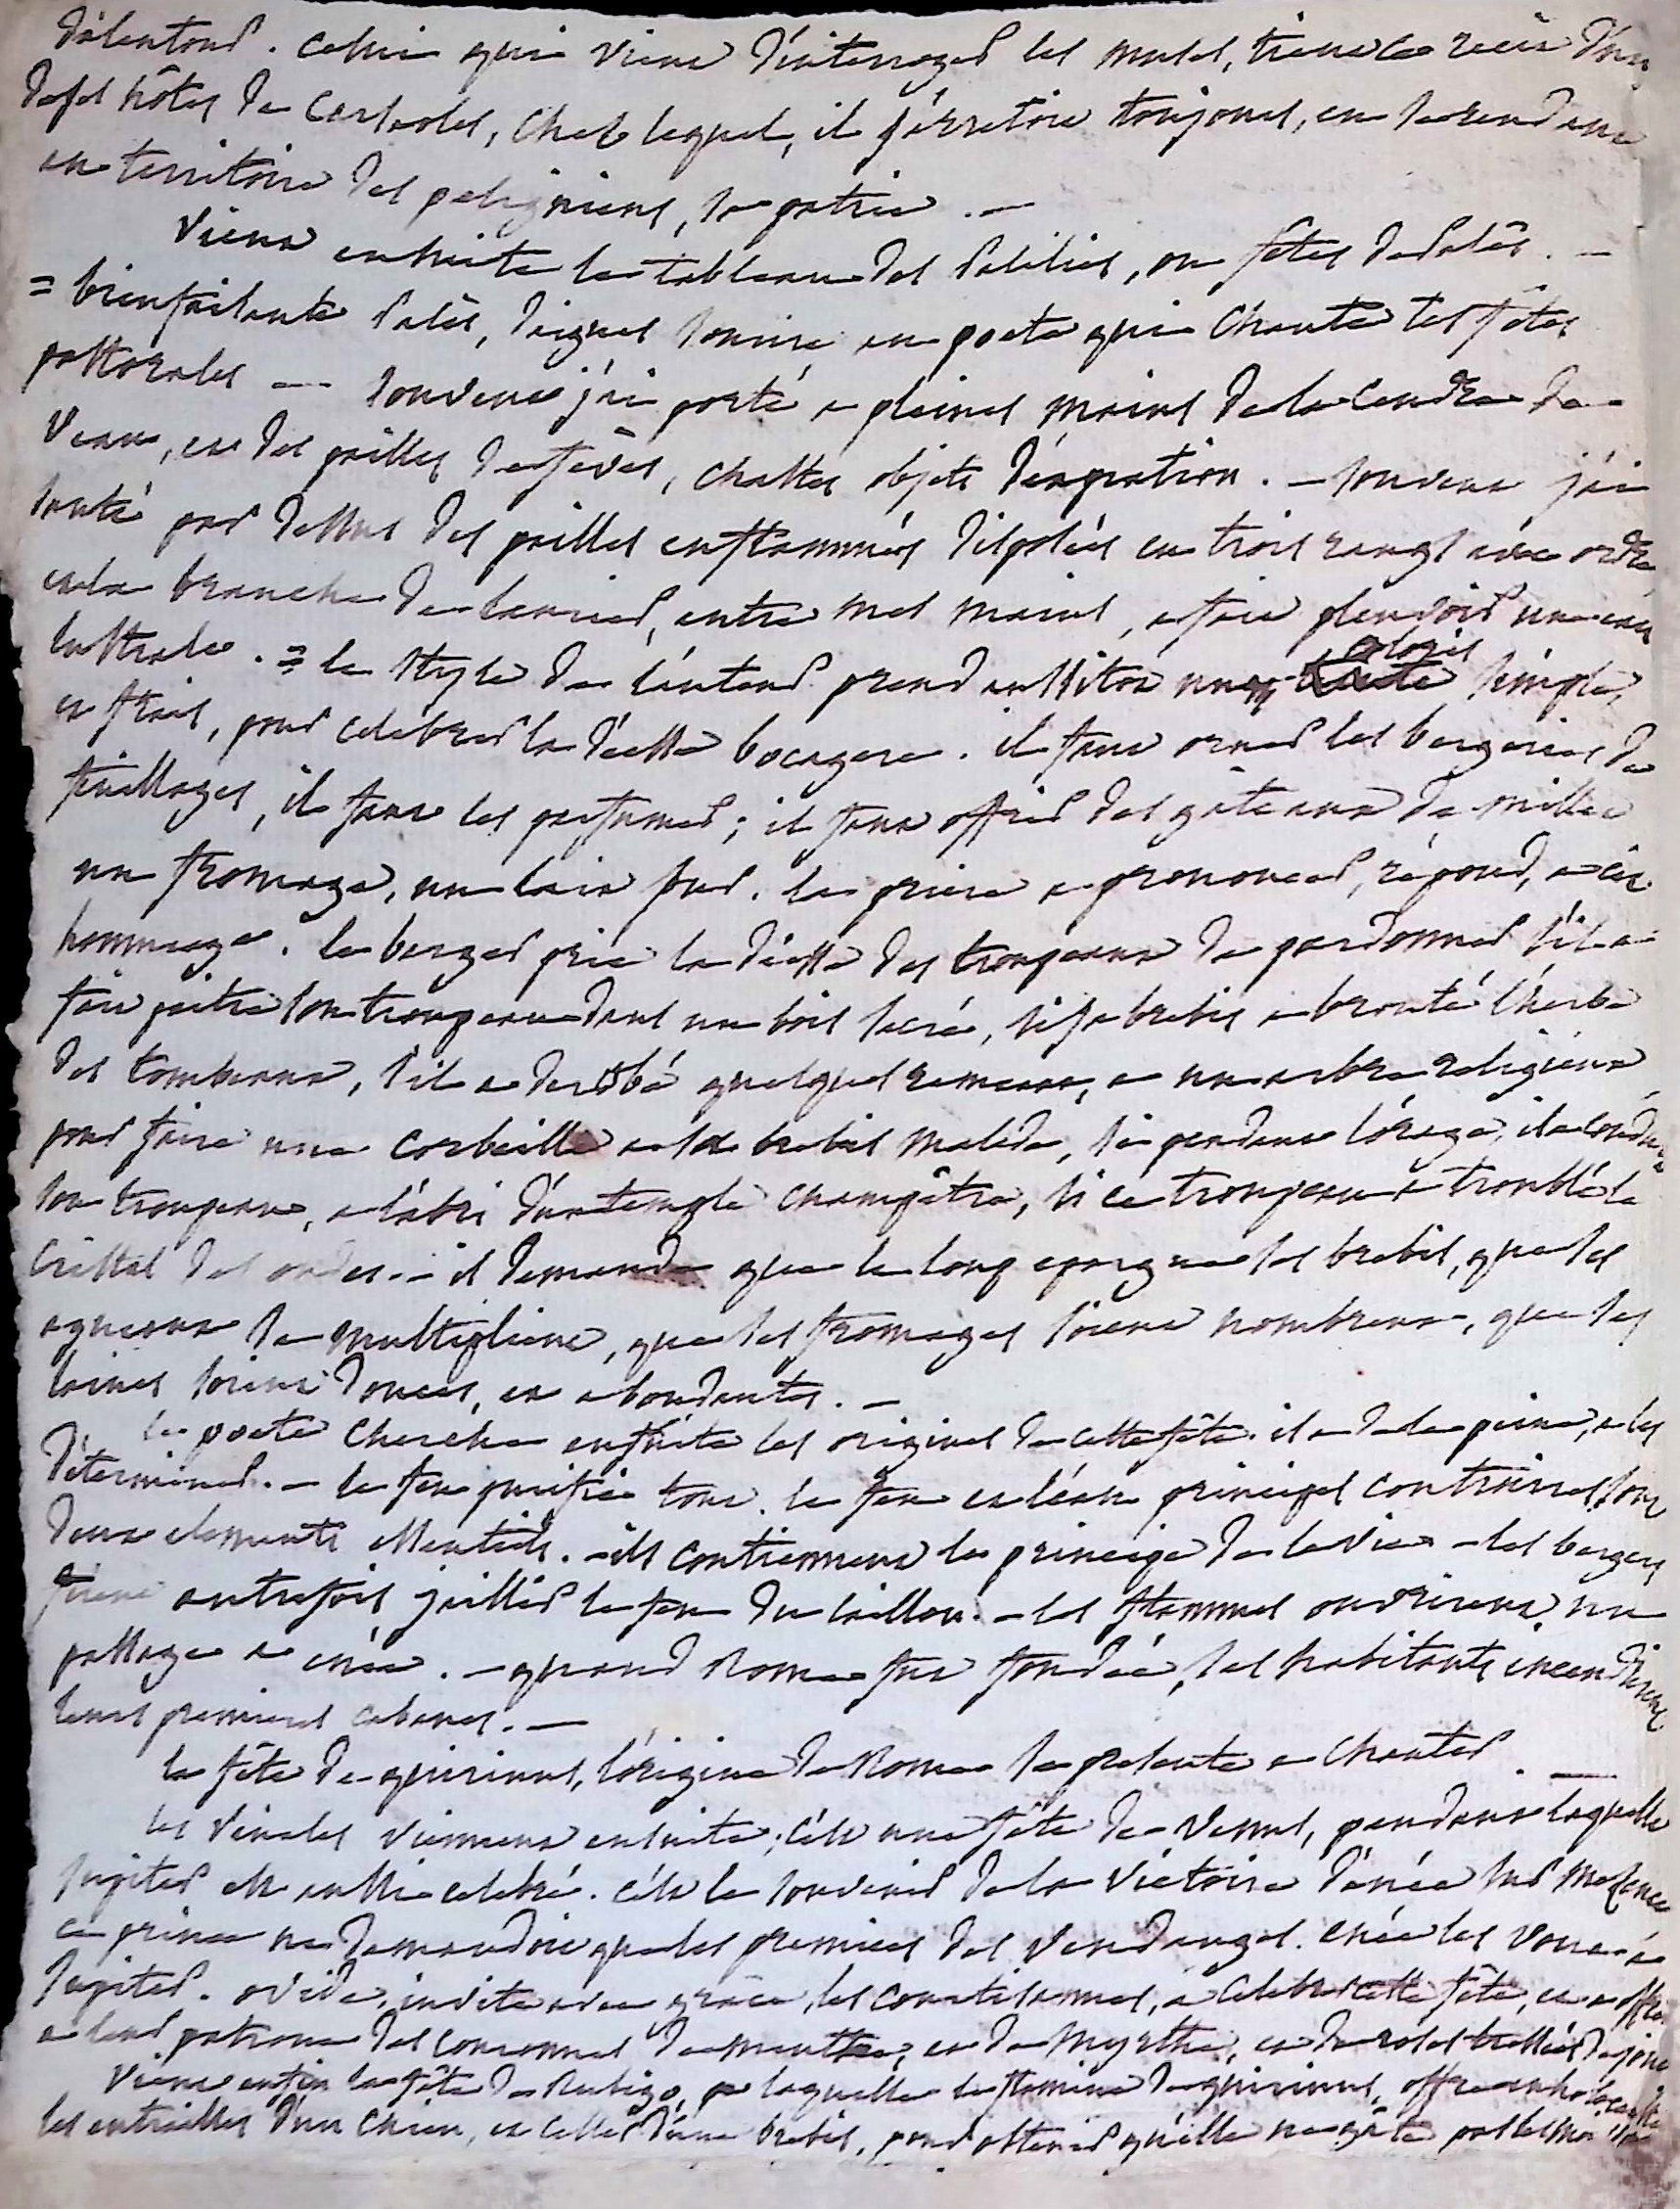 d'alentour. celui qui vient d'interroger les muses, tient ce récit d'un
de ses hôtes de Carseoles, chez lequel, il s'arretoit toujours, en se rendant
au territoire des peligniens, sa patrie. —
Vient ensuite le tableau des Palilies, ou fêtes de Palès. —
= bienfaisante Palès, daignes sourire au poete qui chante tes fêtes
pastorales — souvent j'ai porté a pleines mains de la cendre de
veau, et des pailles de fèves, chastes objets d'expiation. — souvent j'ai
sauté par dessus des pailles enflammées disposées en trois rangs avec ordre
et la branche de laurier, entre mes mains, a fait pleuvoir une eau
lustrale. = le style de l'auteur prend aussitôt un coloris simple,
et frais, pour celebrer la déesse bocagere. il faut orner les bergeries de
feuillages, il faut les parfumer; il faut offrir des gâteaux de millet
un fromage, un lait pur. la priere a prononcer, répond, a cet
hommage. le berger prie la déesse des troupeaux de pardonner s'il a
fait paitre son troupeau dans un bois sacré, si sa brebis a brouté l'herbe
des tombeaux, s'il a derobé quelques rameaux, a un arbre religieux
pour faire une corbeille a sa brebis malade, si pendant l'orage, il a conduit
son troupeau, a l'abri d'un temple champêtre, si ce troupeau a troublé le
cristal des ondes. — il demande que le loup epargne ses brebis, que ses
agneaux se multiplient, que ses fromages soient nombreux, que ses
laines soient douces, et abondantes. —
le poete cherche ensuite les origines de cette fête. il a de la peine, a les
déterminer. — le feu purifie tout. le feu et l'eau principes contraires sont
deux elements essentiels. — ils contiennent le principe de la vie — les bergers
firent autrefois jaillir le feu du caillou. — les flammes ouvrirent un
passage a enée. — quand Rome fut fondée, ses habitants incendierent
leurs premieres cabanes. —
la fête de quirinus, l'origine de Rome se presente a chanter. —
les vinales viennent ensuite; c'est une fête de Venus, pendant laquelle
Jupiter est aussi celebré. c'est le souvenir de la victoire d'enée sur Mezence
ce prince ne demandoit que les premices des vendanges. enée les voua a
Jupiter. ovide, invite avec grâce, les courtisannes, a celebrer cette fête, et a offrir
a leur patrone des couronnes de menthe, et de myrthe, et de roses tressées de jonc
Vient enfin la fête de Rubigo, a laquelle le flamine de quirinus, offre en holocauste
les entrailles d'un chien, et celles d'une brebis, pour obtenir qu'elle ne gâte pas les